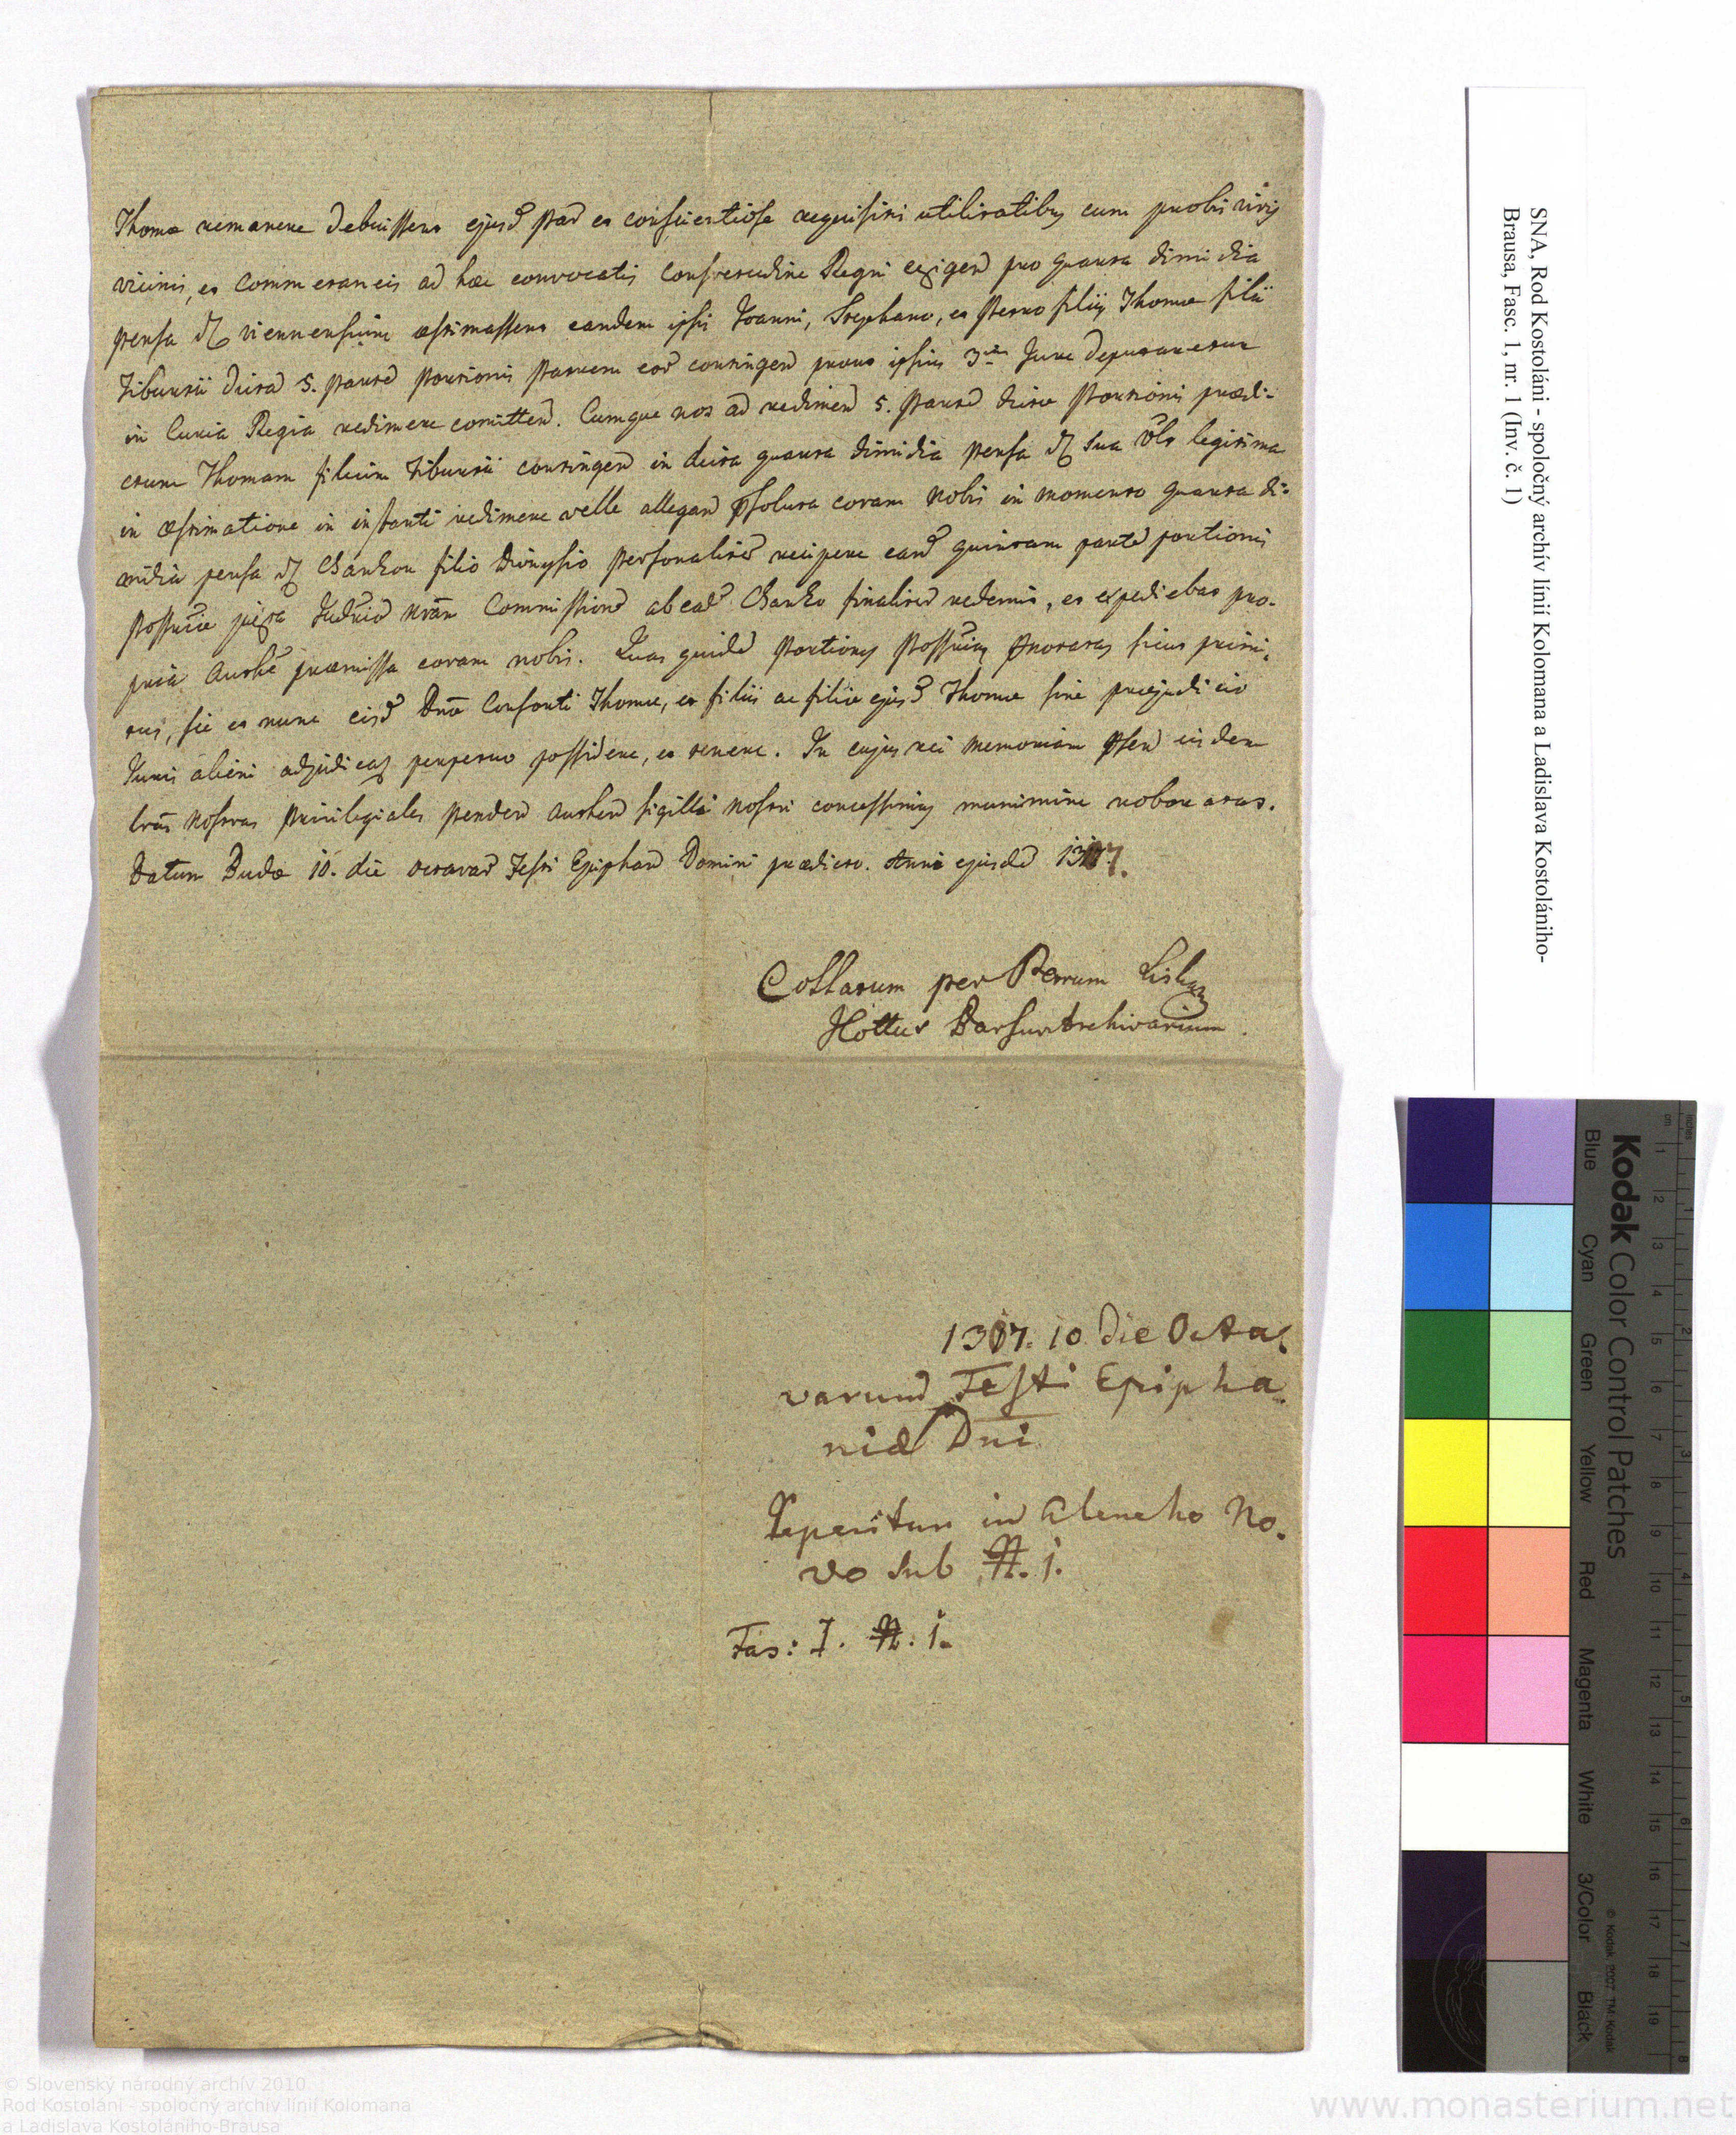 Thomæ remanere debuissent ejusd par et conscientiose requisiti utilitatibus cum probis viris
vicinis, et commetaneis ad hæc convocatis consvetudine Regni exigen pro quarta dimidia
pensa viennensium æstimassent eandem ipsis Joanni, Stephano, et Petro filiis Thomæ filii
Tiburtii dicta 5. parte portionis patrem eor contingen prout ipsius Jure deputaretur
in Curia Regia redimere comitten. Cumque nos ad redimen 5. parte dictæ portionis prædi-
ctum Thomam filium Tiburtii contingen in dicta quarta dimidia pensa sua legitima
in æstimatione in instanti redimere velle allegan soluta coram nobis in momento quarta di-
midia pensa Chankou filio Dionysio personaliter recipere eand quintam parte portionis
possrie juxta nram Commissione ab eod Chanko finaliter redemit, et expediebat pro-
pria premissa coram nobis. Quas quide portiones sicut priri-
tus, sic et nunc eisd Dnæ Consorti Thomæ, et filiis ac filiæ ejusd Thomæ sine præjudicio
Juris alieni adjudicat perpetuo possidere, et tenere. In cujus rei memoriam eisdem
lras nostras Privilegiales penden authen sigilli nostri concessimus munimine roboratas.
Datum Budæ 10. die octavar Festi Epiphan Domini prædicto. Anni ejusde 1317.
Collatum per Petrum
Archivarium.
1317. 10 die Octa-
varum Festi Epipha-
niæ Dni
Reperitur in Elencho No-
vo sub N. 1.
Fas: I. N. 1.
SNA, Rod Kostoláni - spoločný archív línií Kolomana a Ladislava Kostolániho-
Brausa, Fasc. 1, nr. 1 (Inv. č. 1)
Kodak Color Control Patches
Blue Cyan Green Yellow Red Magenta White 3/Color Black
© Kodak, 2007 TM: Kodak
inches 1 2 3 4 5 6 7 8
cm 1 2 3 4 5 6 7 8 9 10 11 12 13 14 15 16 17 18 19
© Slovenský národný archív 2010
Rod Kostoláni - spoločný archív línií Kolomana
a Ladislava Kostolániho-Brausa
www.monasterium.net